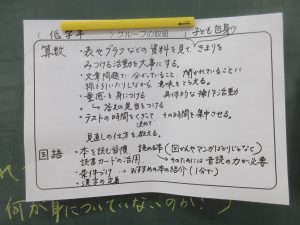 (低学年 )グループの取組 子ども自身の
算数 ・表やグラフなどの資料を見てきまりを
みつける活動を大事にする。
・文章問題で分かっていること、聞かれていることに
線を引いたりしながら、意味をとらえる。
・量感を身につける 具体的な操作活動
↳答えの見当をつける
・テストの時間をくぎって その時間を集中させる。
見直しの仕方を教える。
国語 ・本を読む習慣 読める本(図かんやマンガばかりじゃなく)
読書カードの活用 そのためには音読の力が必要
・条件づけ おすすめの本の紹介(1分で)
・漢字の定着
何か身についていないのか?